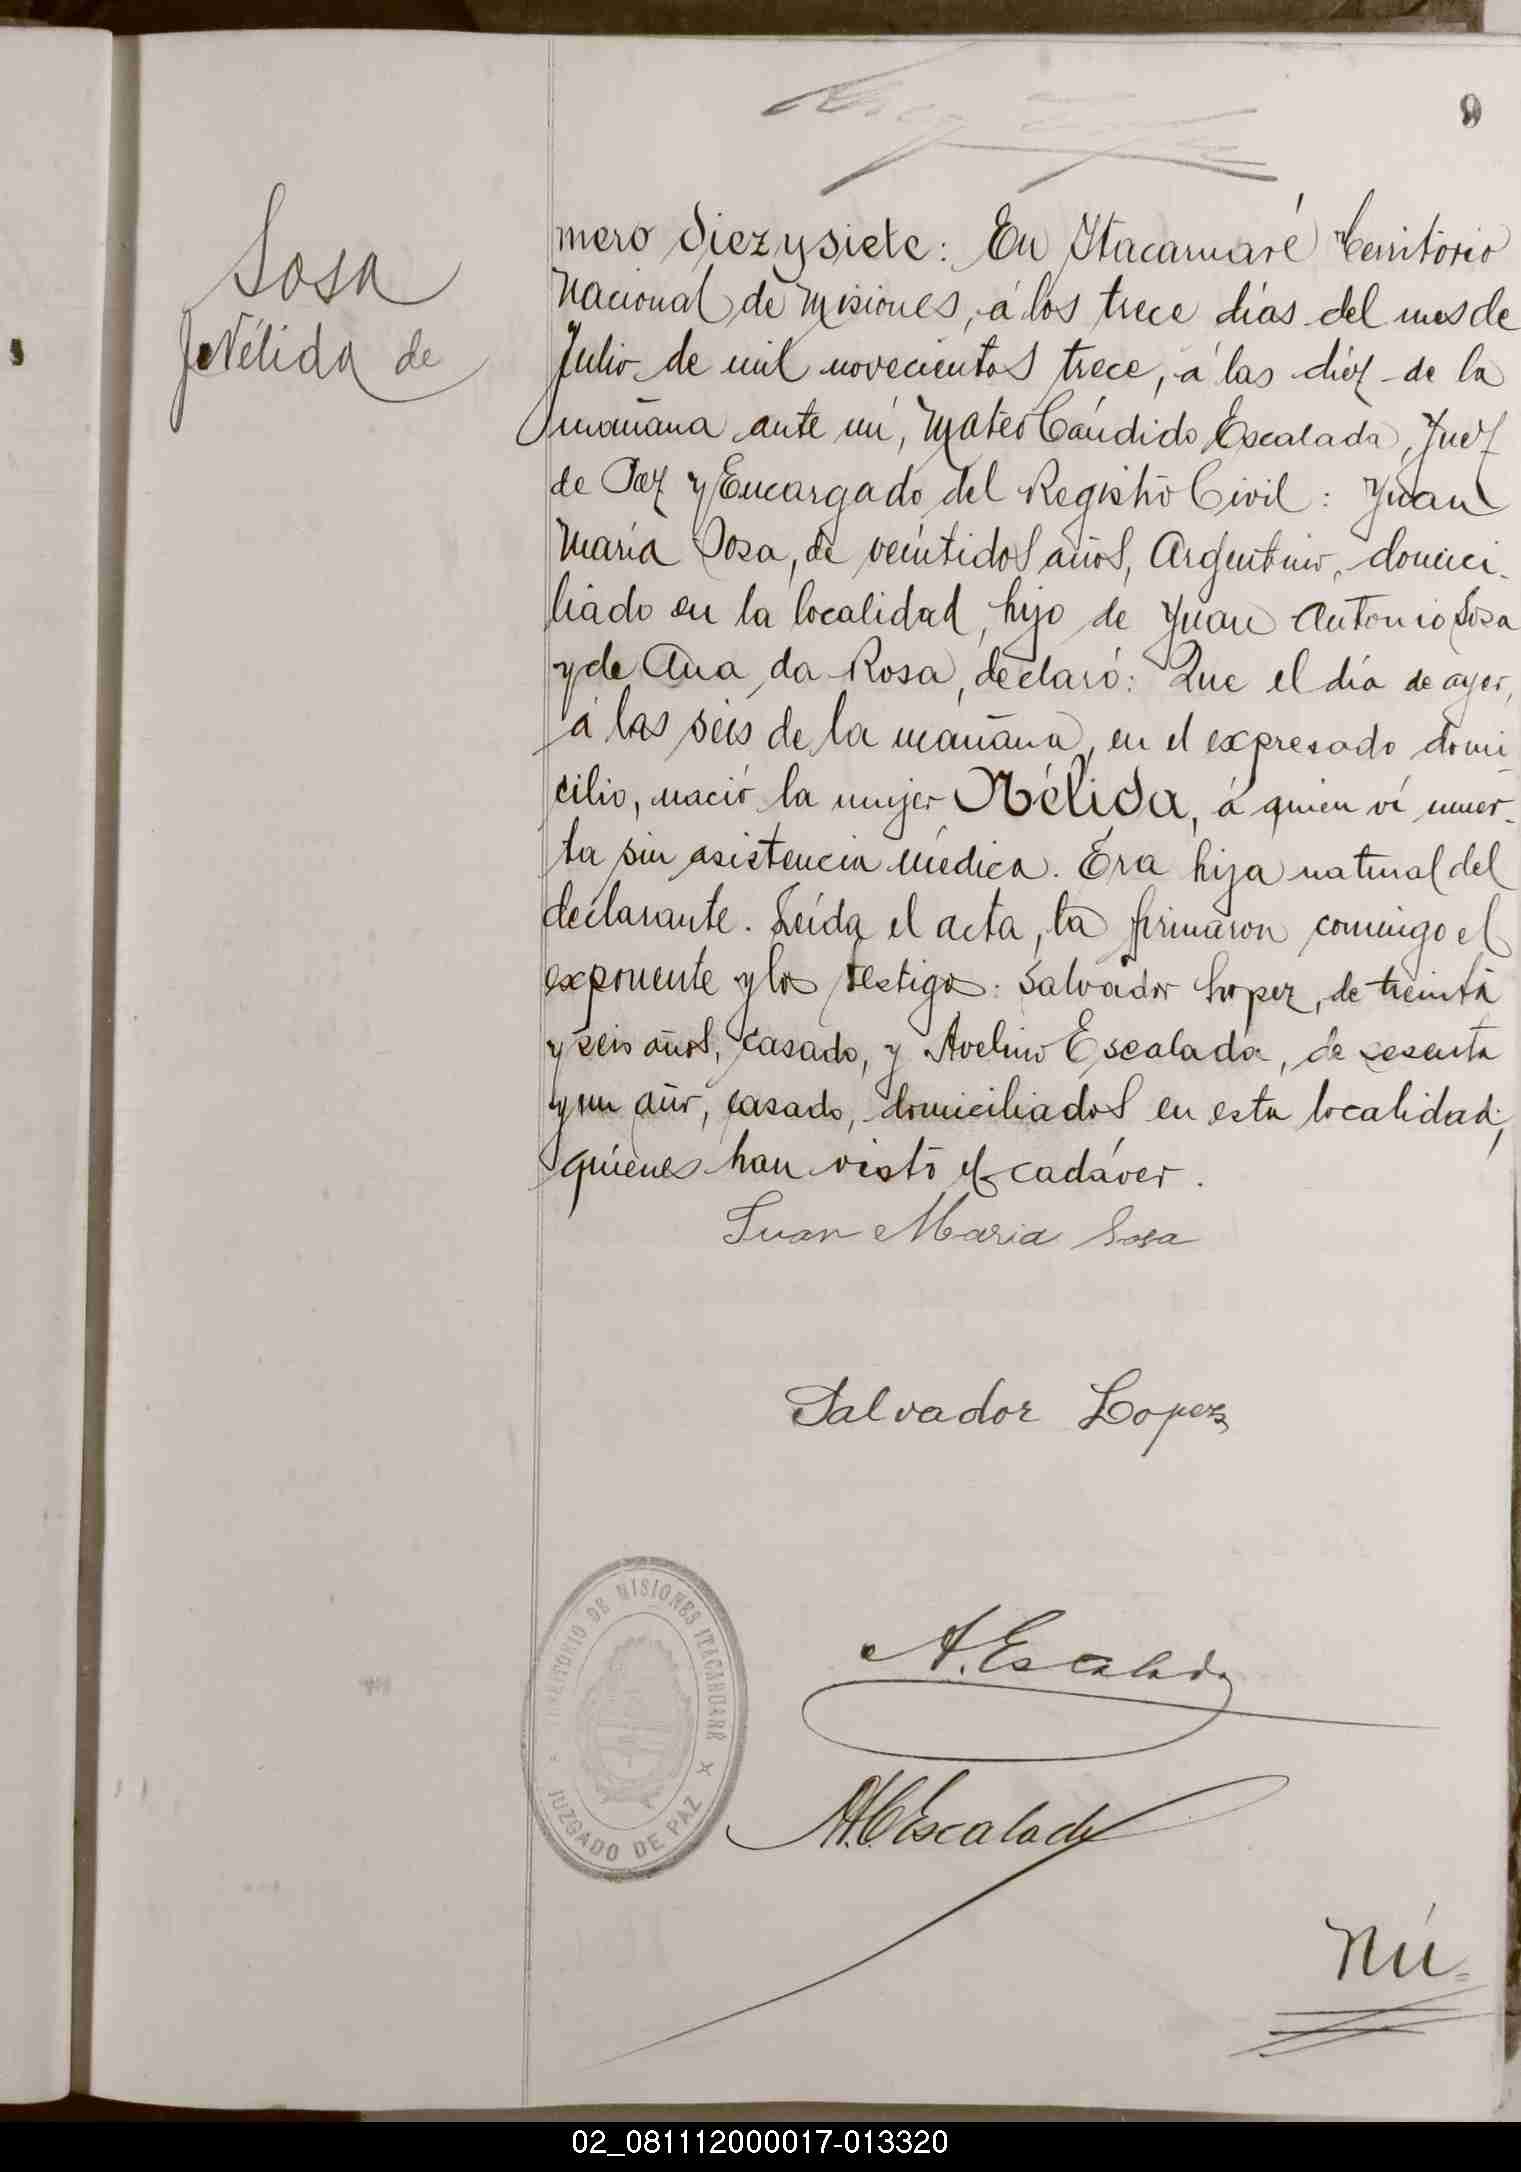 9
Sosa
Nélida de
mero diez y siete: En Itacaruaré Territorio
Nacional de Misiones, á los trece días del mes de
Julio de mil novecientos trece, á las diez de la
mañana ante mí, Mateo Cándido Escalada, Juez
de Paz y Encargado del Registro Civil: Juan
María Sosa, de veintidos años, Argentino, domici-
liado en la localidad, hijo de Juan Antonio Sosa
y de Ana da Rosa, declaró: Que el día de ayer,
á las seis de la mañana, en el expresado domi
cilio, nació la mujer Nélida, á quien ví muer-
ta sin asistencia médica. Era hija natural del
declarante. Leída el acta, la firmaron conmigo el
exponente y los testigos: Salvador Lopez, de treinta
y seis años, casado, y Avelino Escalada, de sesenta
y un año, casado, domiciliados en esta localidad,
quienes han visto el cadáver.
Juan Maria Sosa
Salvador Lopez
TERRITORIO DE MISIONES ITACARUARÉ
JUZGADO DE PAZ
A. Escalada
M.C. Escalada
Nú=
02_081112000017-013320